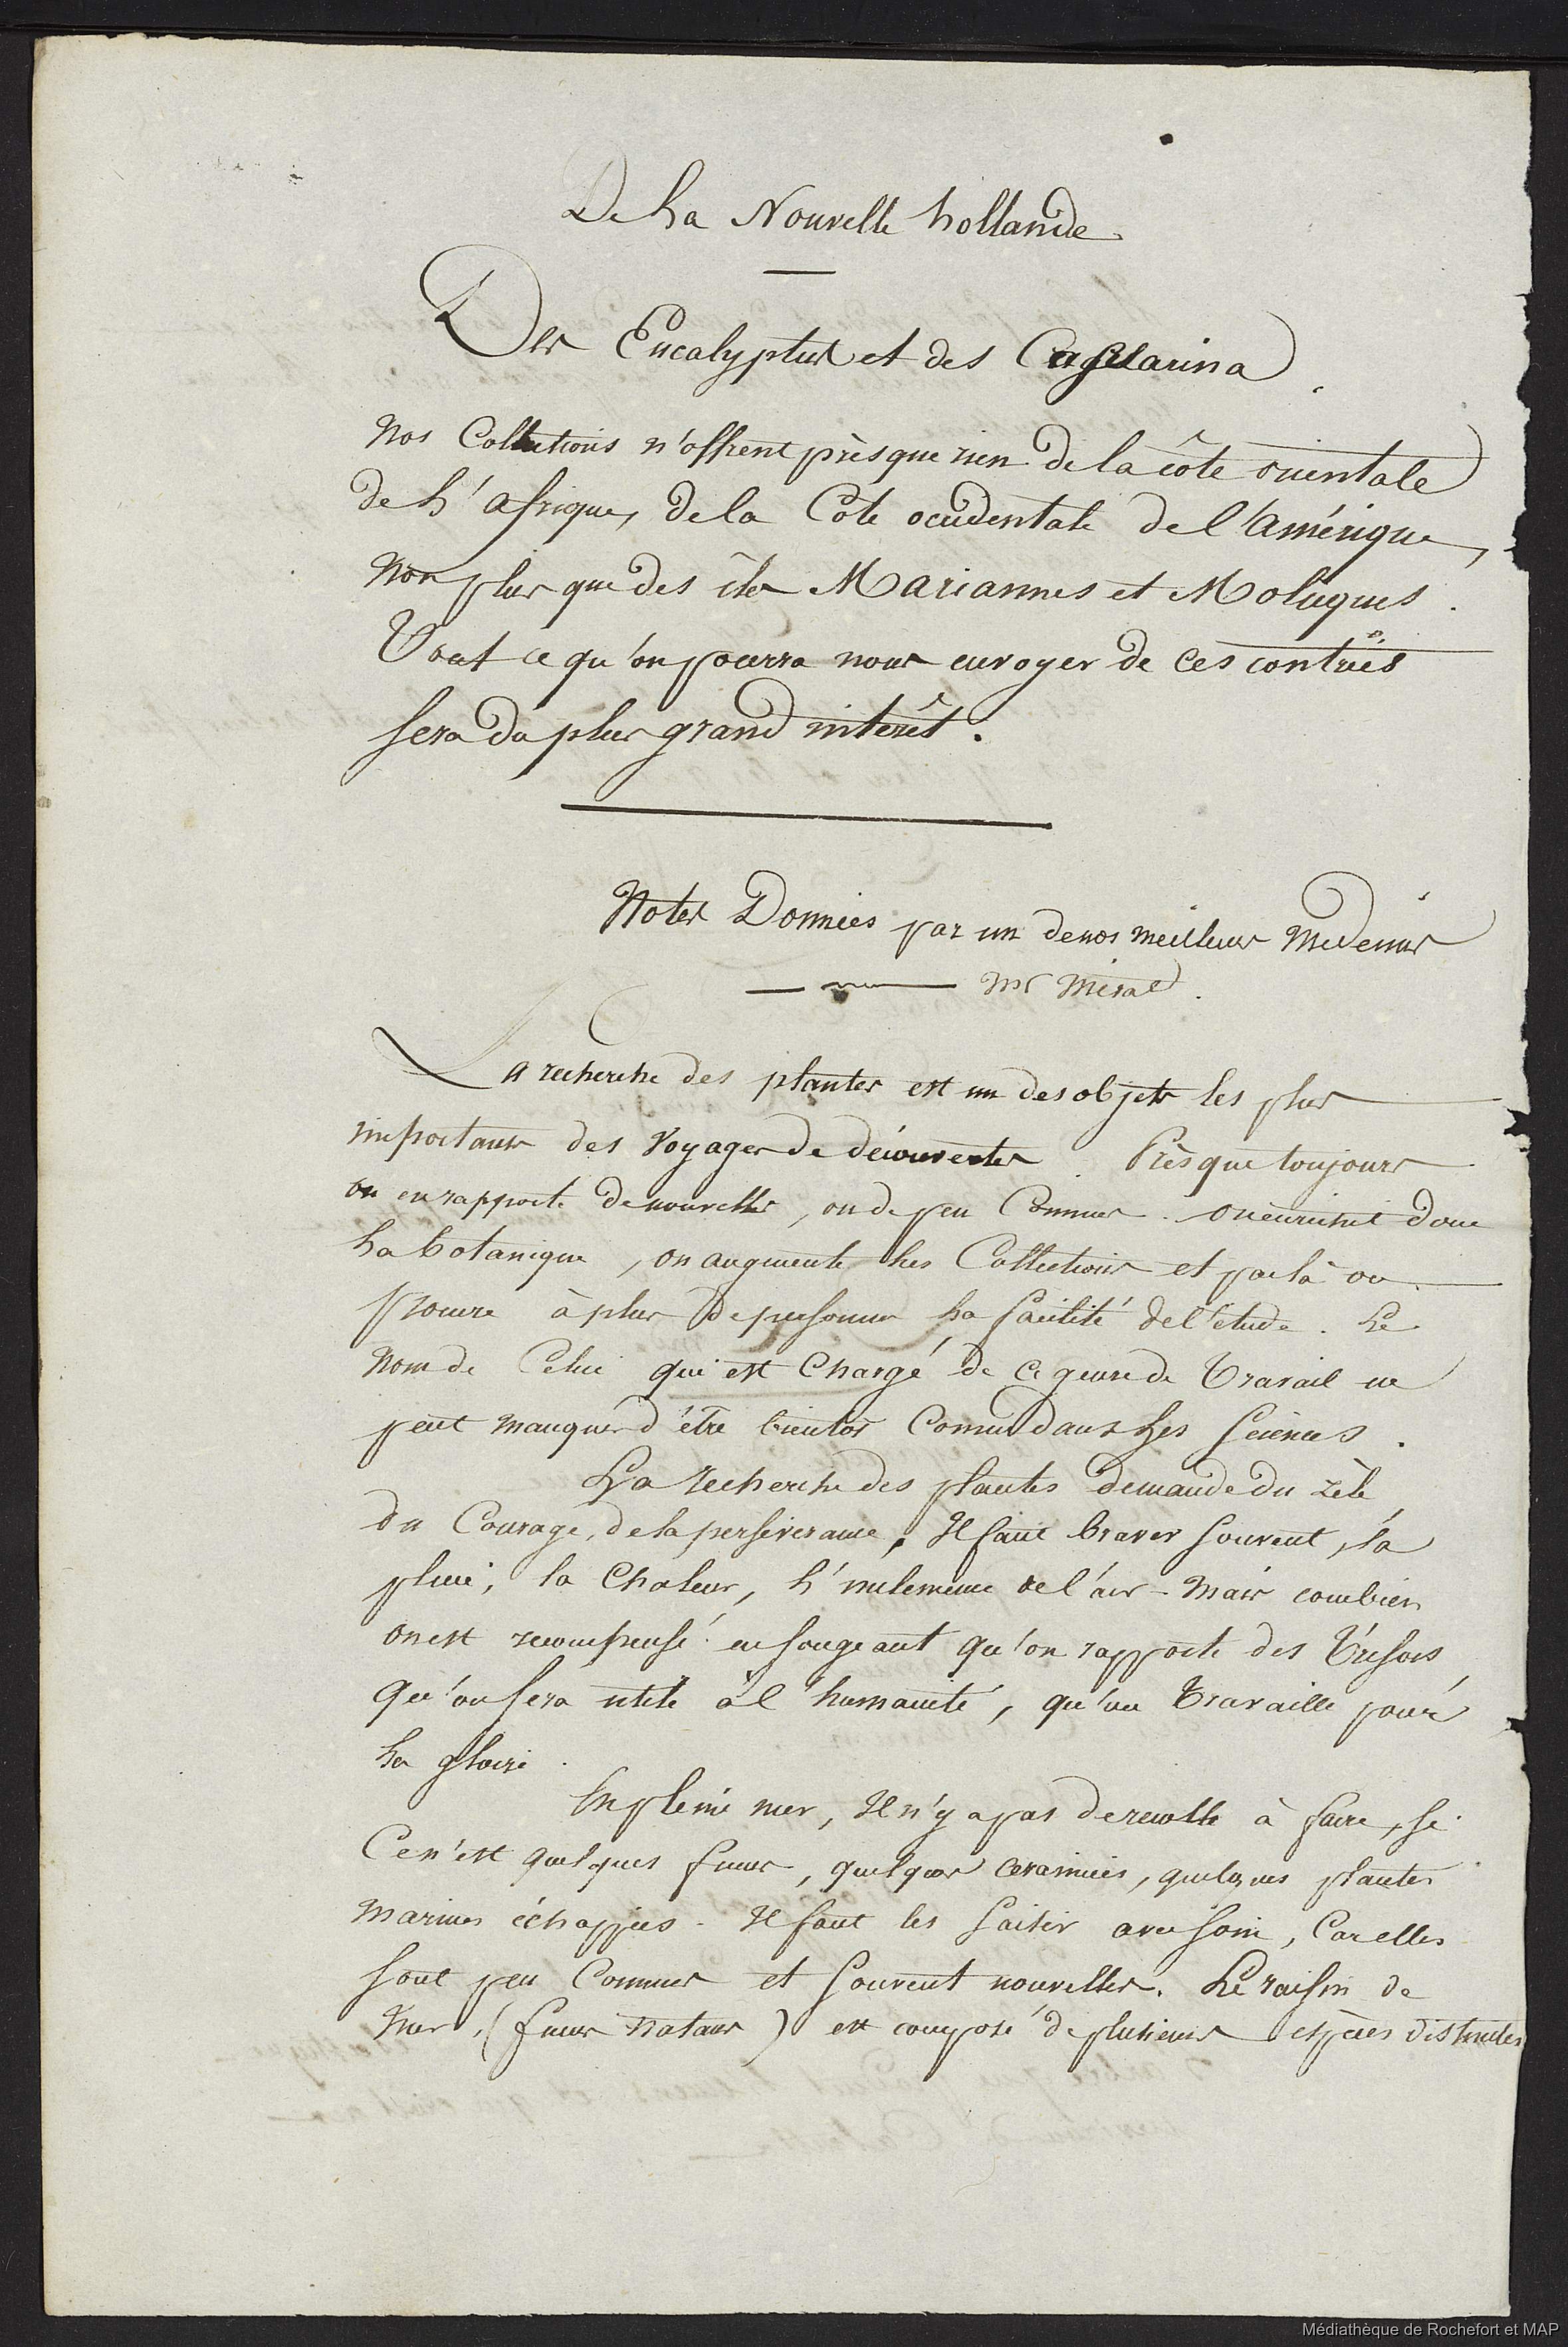 De La Nouvelle hollande
Des Eucalyptus et des Casuarina
Nos Collections n'offrent présque rien de la côte orientale
de L'afrique, de la Côte occidentale de l'amérique,
Non plus que des îles Mariannes et Moluques.
Tout ce qu'on pourra nous envoyer de ces contrées
sera du plus grand intérêt.
Notes Données par un de nos meilleurs Medecins
Mr Mérat.
La recherche des plantes est un des objets les plus
importans des Voyages de découvertes. Présque toujours
on en rapporte de nouvelles, ou de peu Connues. on enrichit donc
La botanique, on augmente Les Collections et par là on
procure à plus de personnes La facilité de l'étude. Le
Nom de Celui qui est Chargé de Ce genre de Travail ne
peut manquer d'être bientôt Connu dans Les Sciences.
La recherche des plantes demande du zèle
du Courage, de la perséverance, Il faut braver souvent, la
pluie, la Chaleur, L'inclemence de l'air - Mais combien
on est recompensé en songeant qu'on rapporte des Trésors,
qu'on sera utile à l'humanité, qu'on Travaille pour
La gloire.
En pleine mer, Il n'y a pas de recolte à faire, si
Ce n'est quelques fucus, quelques ceramiées, quelques plantes
Marines échappées - Il faut les saisir avec soin, Car elles
sont peu Connues et souvent nouvelles. Le raisin de
Mer, (fucus natans) est composé de plusieurs espèces distinctes
Médiathèque de Rochefort et MAP